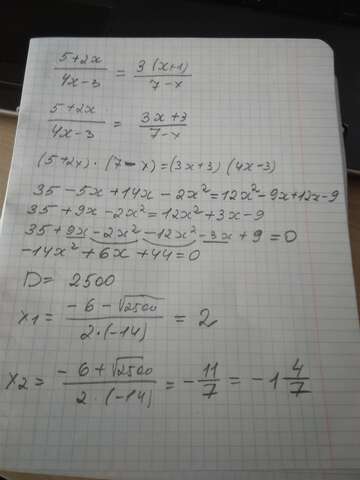 (5+2x)/(4x-3) = 3(x+1)/(7-x)
(5+2x)/(4x-3) = (3x+3)/(7-x)
(5+2x)·(7-x)=(3x+3)(4x-3)
35-5x+14x-2x²=12x²-9x+12x-9
35+9x-2x²=12x²+3x-9
35+9x-2x²-12x²-3x+9=0
-14x²+6x+44=0
D=2500
x₁= (-6-√2500)/(2·(-14)) = 2
x₂= (-6+√2500)/(2·(-14)) = -11/7 = -1 4/7